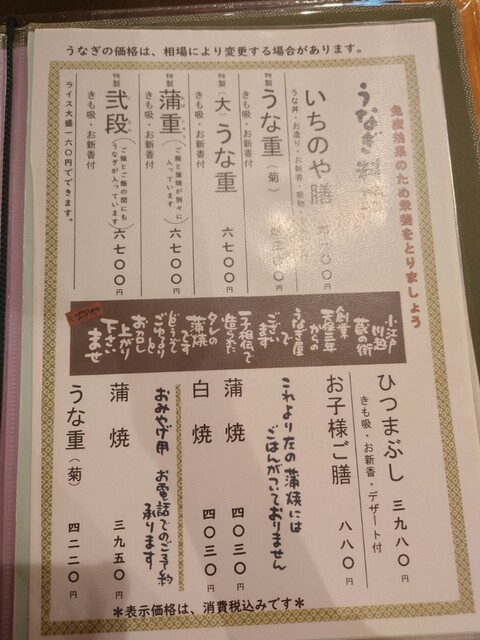 うなぎの価格は、相場により変更する場合があります。
免疫効果のため栄養をとりましょう
うなぎ料
いちのや膳
うな丼・お造り・お新香・吸物
一〇〇円
特製
うな重(菊)
きも吸・お新香付
円
特製
(大)うな重 六七〇〇円
きも吸・お新香付
特製
蒲重(ご飯と蒲焼が別々に入っています) 六七〇〇円
きも吸・お新香付
特製
弐段(ご飯とご飯の間にもうなぎが入っています) 六七〇〇円
きも吸・お新香付
ライス大盛一六〇円でできます。
小江戸
川越
蔵の街
創業
天保三年
からの
うなぎ屋
で
ございます
一子相伝で
造られた
タレの
蒲焼
です
どうぞ
ごゆるり
と
お召し
上がり
下さい
ませ
ひつまぶし 三九八〇円
きも吸・お新香・デザート付
お子様ご膳 八八〇円
これより左の蒲焼には
ごはんがついておりません
蒲焼 四〇三〇円
白焼 四〇三〇円
おみやげ用 お電話でのご予約
承ります
蒲焼 三九五〇円
うな重(菊) 四二二〇円
*表示価格は、消費税込みです*